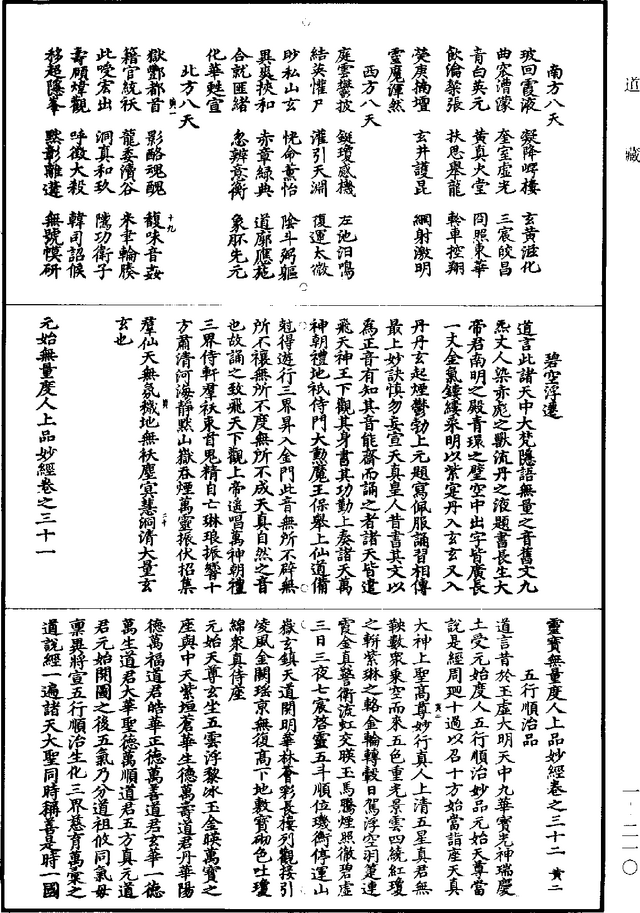 南方八天
玻回霞液　凝降　棲　玄黃滋化
曲容漕濛　奎室虛光　三宸皎昌
青白英元　黃真火堂　冏照東華
飲　棃張　扶思舉龍　軫車控翔
熒庚摛壇　玄井護昆　綱射激明
靈魔渾然
西方八天
庭雲鬱披　　瓊感機　左池汨鳴
結英懼尸　灌引天淵　復運太微
眇私山玄　恍命薰怡　陰斗弼軀
異爽挾和　赤章綠典　道廓應苑
合就匪緒　忽辨意衡　象　先元
化華甦宣
北方八天
獄酆都首　影酩魂醜　馥味音姦
籍官統袄　龍委濆谷　來聿輪
此噯宏出　洞真和玖　隲功衛子
壽願煒觀　呼徵大殺　韓司詔候
移超隱峯　黙彰離遣　無號慔研
碧空浮遷
道言此諸天中大梵隱語無量之音舊文九
炁丈人染赤彪之獸流丹之液題書長生大
帝君南明之殿青環之壁空中出字皆廣長
一丈金氣鏤縷采明以紫霆丹入玄玄又入
丹丹玄起煙鬱勃上元題寫佩服誦習相傳
最上妙訣慎勿妄宣天真皇人昔書其文以
爲正音有知其音能齋而誦之者諸天皆遣
飛天神王下觀其身書其功勤上奏諸天萬
神朝禮地祇侍門大勳魔王保舉上仙道備
尅得遊行三界昇入金門此音無所不辟無
所不禳無所不度無所不成天真自然之音
也故誦之致飛天下觀上帝遥唱萬神朝禮
三界侍軒群袄束首鬼精自亡琳琅振響十
方肅清河海靜黙山嶽吞煙萬靈振伏招集
羣仙天無氛穢地無袄塵冥慧洞清大量玄
玄也
元始無量度人上品妙經卷之三十一
靈寶無量度人上品妙經卷之三十二　黃二
五行順治品
道言昔於玉虛大明天中九華寶光神瑞慶
土受元始度人五行順治妙品元始天尊當
說是經周迴十過以召十方始當詣座天真
大神上聖高尊妙行真人上清五星真君無
鞅數衆乘空而來五色重光景雲四繞紅瓊
之軿紫琳之輅金輪轉轂日駕浮空羽蓋連
霞金真警衛流虹交暎玉馬騰煙照徹碧虛
三日三夜七宸啓靈五斗順位璣衡停運山
嶽玄鎮天道開明華林薈彩長接列觀接引
凌風金闕瑶京無復高下地數寶砌色吐瓊
綿衆真侍座
元始天尊玄坐五雲浮黎冰玉金暎萬寶之
座與中天紫垣蒼華生德萬壽道君丹華陽
德萬福道君皓華正德萬善道君玄華一德
萬生道君大華聖德萬順道君五方真元道
君元始開圖之後五氣乃分道祖攸同氣毋
稟異將宣五行順治生化三界慈育萬彙之
道說經一遍諸天大聖同時稱善是時一國
道藏
一二一〇